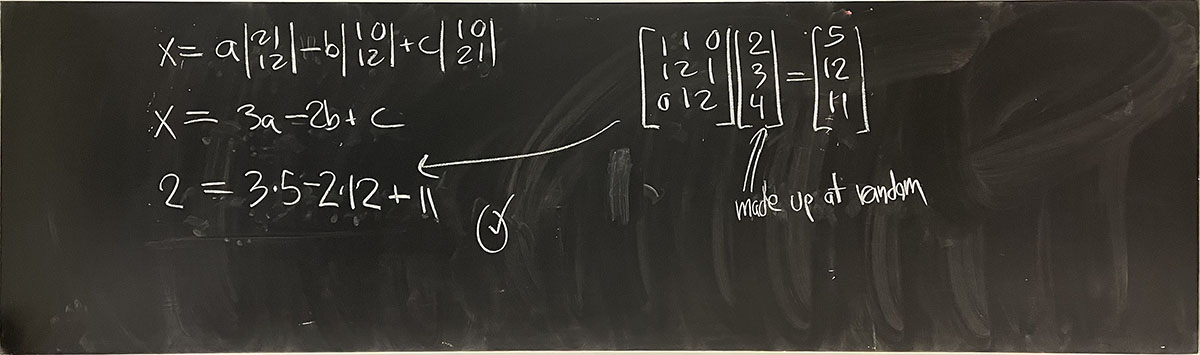 x = a|2 1; 1 2| - b|1 0; 1 2| + c|1 0; 2 1|
x = 3a - 2b + c
2 = 3·5 - 2·12 + 11 ✓
[1 1 0; 1 2 1; 0 1 2][2; 3; 4] = [5; 12; 11]
made up at random